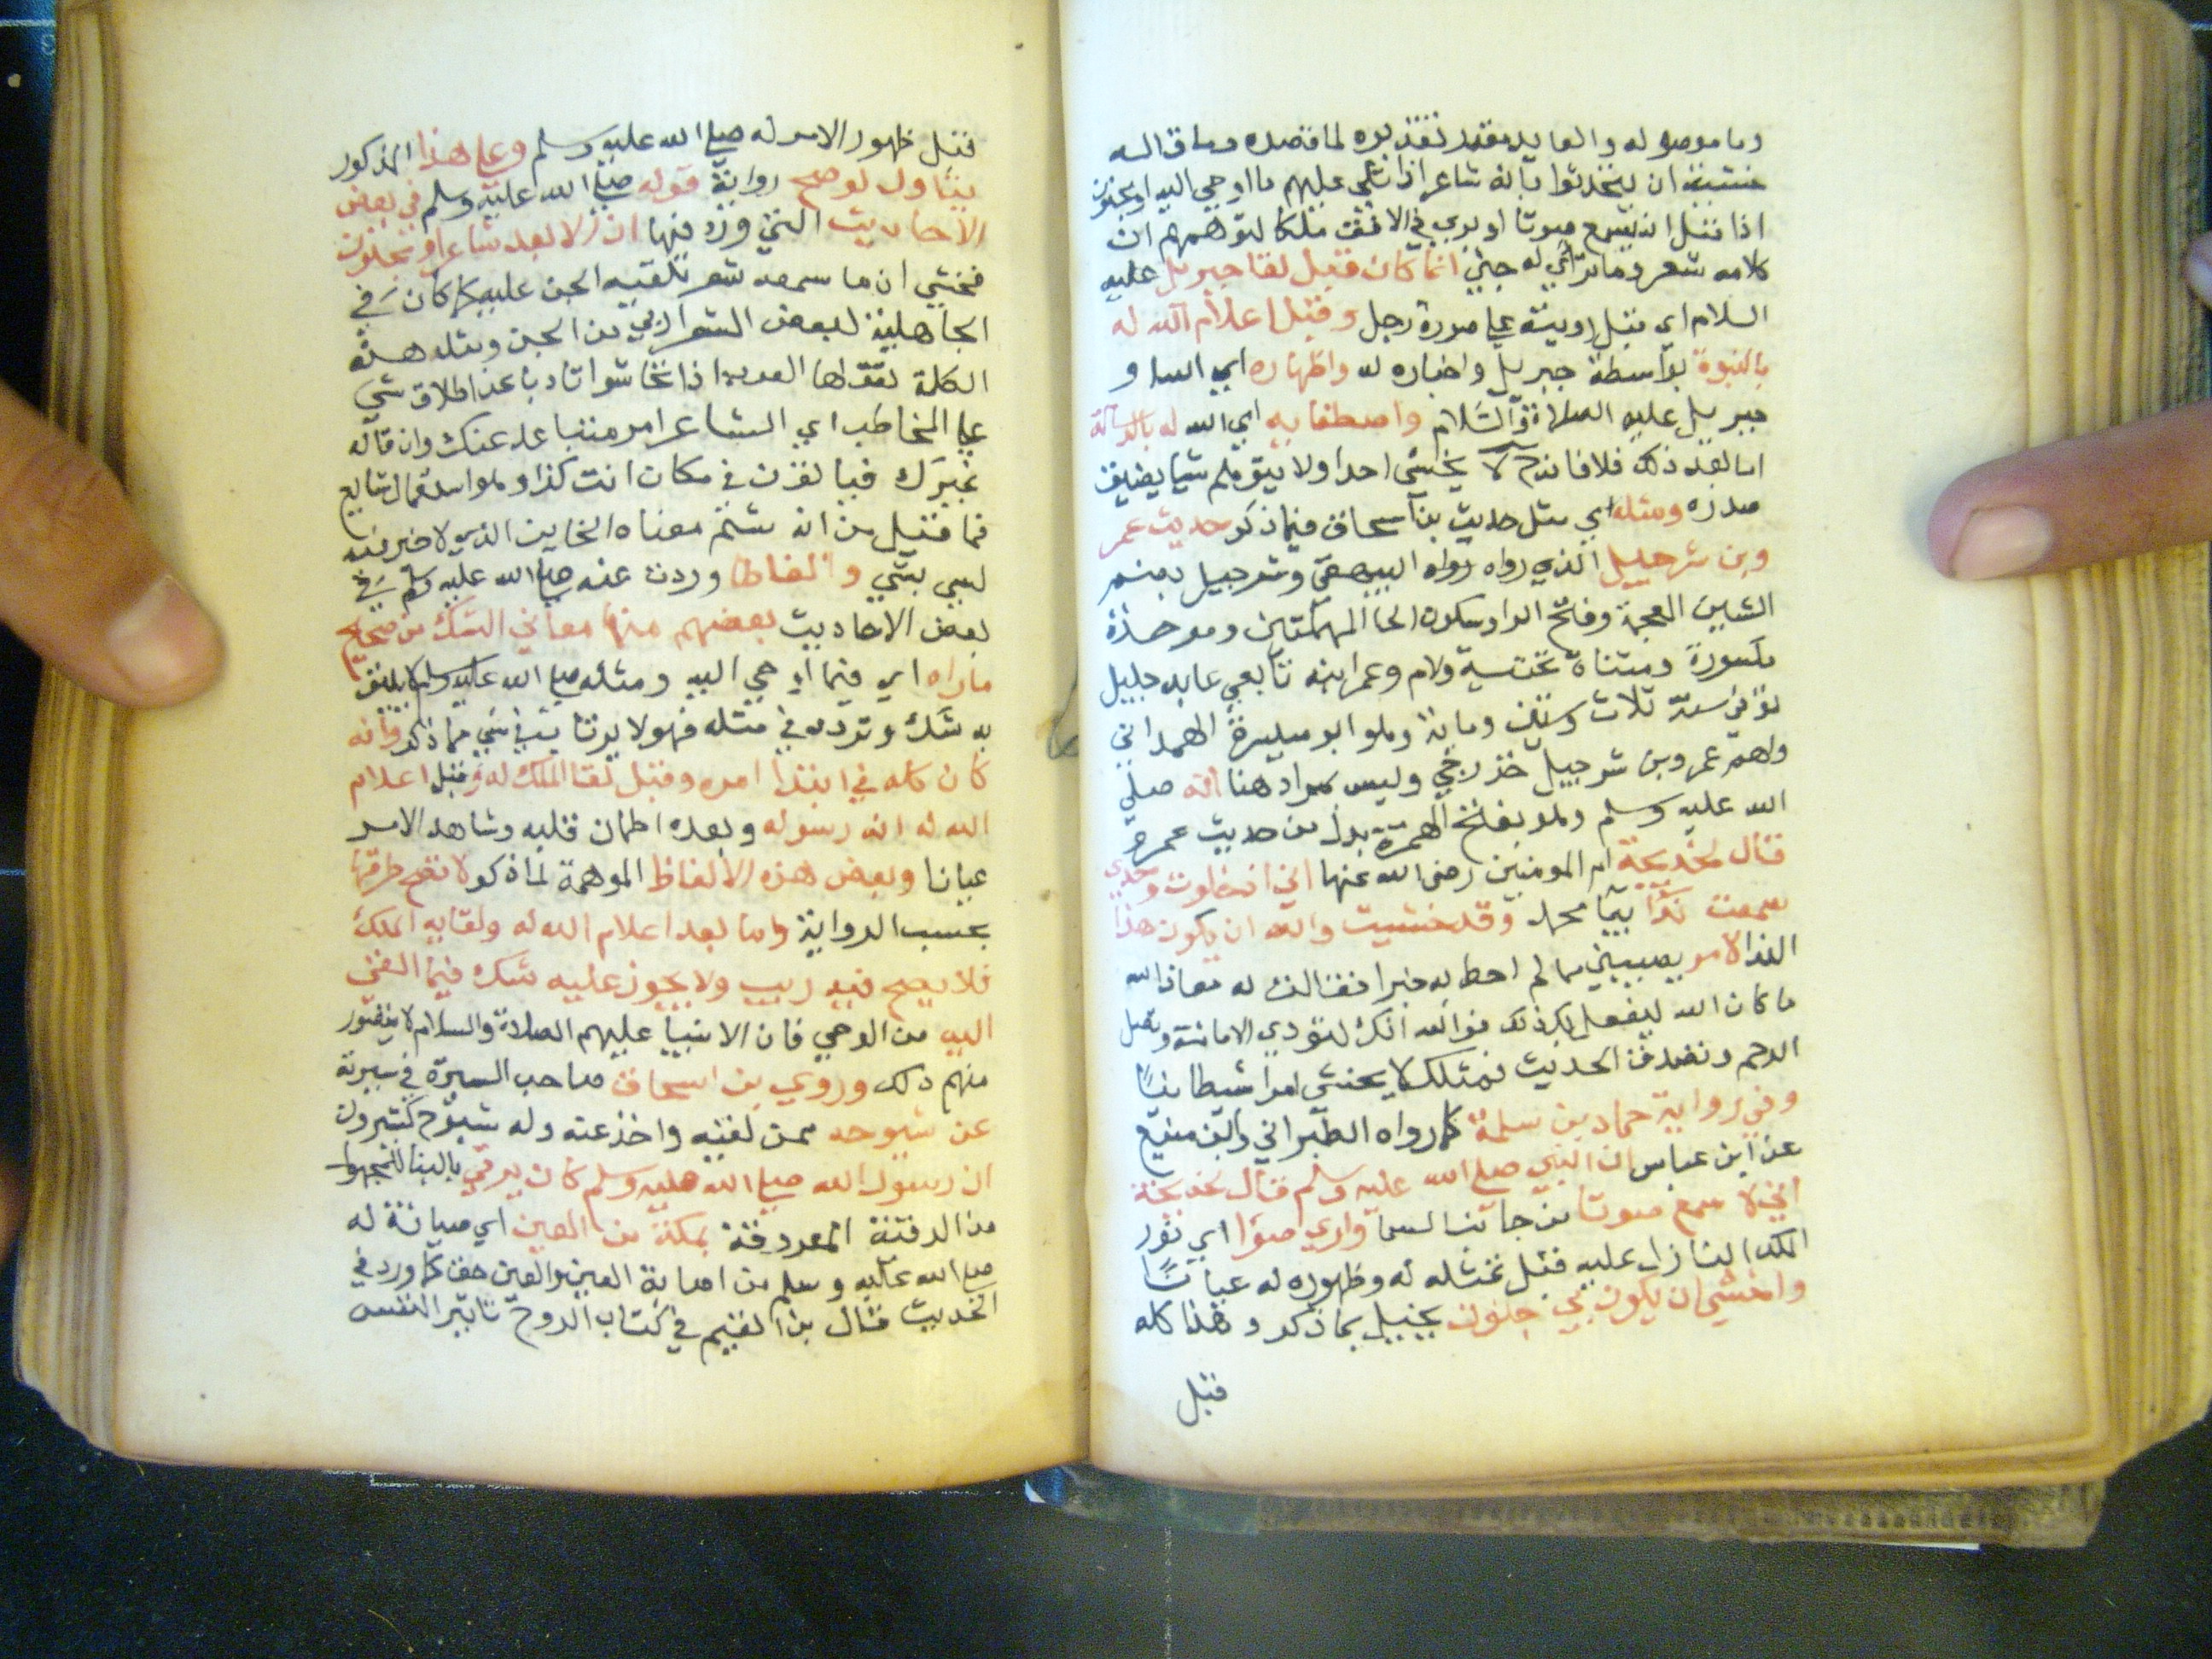 وما موصوله والعايد مقدر تقديره لما قصده وساق اليه
خشية ان يتحدثوا بانه شاعر اذا تلي عليهم ما اوحي اليه او مجنون
اذا قيل انه يسمع صوتا او يري في الافق ملكا لتوهمهم ان
كلامه شعر وما تراي له جني انما كان قبل لقا جبريل عليه
السلام اي قبل رويته علي صورة رجل وقبل اعلام الله له
بالنبوة بواسطة جبريل واخباره له واظهاره اي الله او
جبريل عليه الصلاة والسلام واصطفايه اي الله له بالرسالة
اما بعد ذلك فلا فانه لا يخشي احدا ولا يتوهم شيا يضيق
صدره ومثله اي مثل حديث بن اسحاق فيما ذكر حديث عمر
وبن شرحبيل الذي رواه رواه البيهقي وشرحبيل بضم
الشين المعجمة وفتح الرا وسكون الحا المهملتين وموحدة
مكسورة ومثناة تحتية ولام وعمرا بنه تابعي عابد جليل
توفي سنة ثلاث وستين ومايه وهو ابو ميسرة الهمداني
ولهم عمرو بن شرحبيل خزرجي وليس مراد هنا انه صلي
الله عليه وسلم وهو بفتح الهمزة بدل من حديث عمرو
قال لخديجة ام المومنين رضي الله عنها اني اذ خلوت وحدي
سمعت ندا بيا محمد وقد خشيت والله ان يكون هذا
الندا لامر يصيبني مما لم احط به خبرا فقالت له معاذ الله
ما كان الله ليفعل بك ذلك فوالله انك لتودي الامانة وتصل
الرحم وتصدق الحديث فمثلك لا يخشي امرا شيطانيا
وفي رواية حماد بن سلمة كما رواه الطبراني وابن منيع
عن ابن عباس ان النبي صلي الله عليه وسلم قال لخديجة
اني لا سمع صوتا من جانب السما واري ضوا اي نور
الملك النازل عليه قبل تمثله له وظهوره له عيانا
واخشي ان يكون بي جنون بخييل بما ذكر وهذا كله
قبل
قبل ظهور الامر له صلي الله عليه وسلم وعلي هذا المذكور
يتاول لو صح رواية قوله صلي الله عليه وسلم في بعض
الاحاديث التي ورد فيها ان الابعد شاعر او مجنون
فخشي ان ما سمعه شعر تلقيه الجن عليه كما كان في
الجاهلية لبعض الشعرا ربي من الجن ومثل هذه
الكلمة تقولها العرب اذا تحاشوا تادبا عن اطلاق شي
علي المخاطب اي الشاعر امر متباعد عنك وان قاله
غيرك فيا لقرن في مكان انت كذا وهو استعمال شايع
فما قيل من انه شتم معناه الخاين الذي لا خير فيه
ليس بشي والفاظا وردت عنه صلي الله عليه وسلم في
بعض الاحاديث يفهم منها معاني الشك من صحيح
ما راه اي فيما اوحي اليه ومثله صلي الله عليه وسلم لا يليق
به شك وتردد في مثله فهو لا يرتاب في شي مما ذكر وانه
كان كله في ابتدا امره وقبل لقا الملك له وقبل اعلام
الله له انه رسوله وبعده اطمان قلبه وشاهد الامر
عيانا وبعض هذه الالفاظ الموهمة لما ذكر لا تصح طرقها
بحسب الرواية واما بعد اعلام الله له ولقايه الملك
فلا يصح فيه ريب ولا يجوز عليه شكه فيما القي
اليه من الوحي فان الانبيا عليهم الصلاة والسلام لا يتصور
منهم ذلك وروي بن اسحاق صاحب السيرة في سيرته
عن شيوخه ممن لقيه واخذ عنه وله شيوخ كثيرون
ان رسول الله صلي الله عليه وسلم كان يرقي بالبنا للمجهول
من الرقية المعروفة بمكة من العين اي صيانة له
صلي الله عليه وسلم من اصابة العين والعين حق كما ورد في
الحديث قال بن القيم في كتاب الروح تاثير النفس